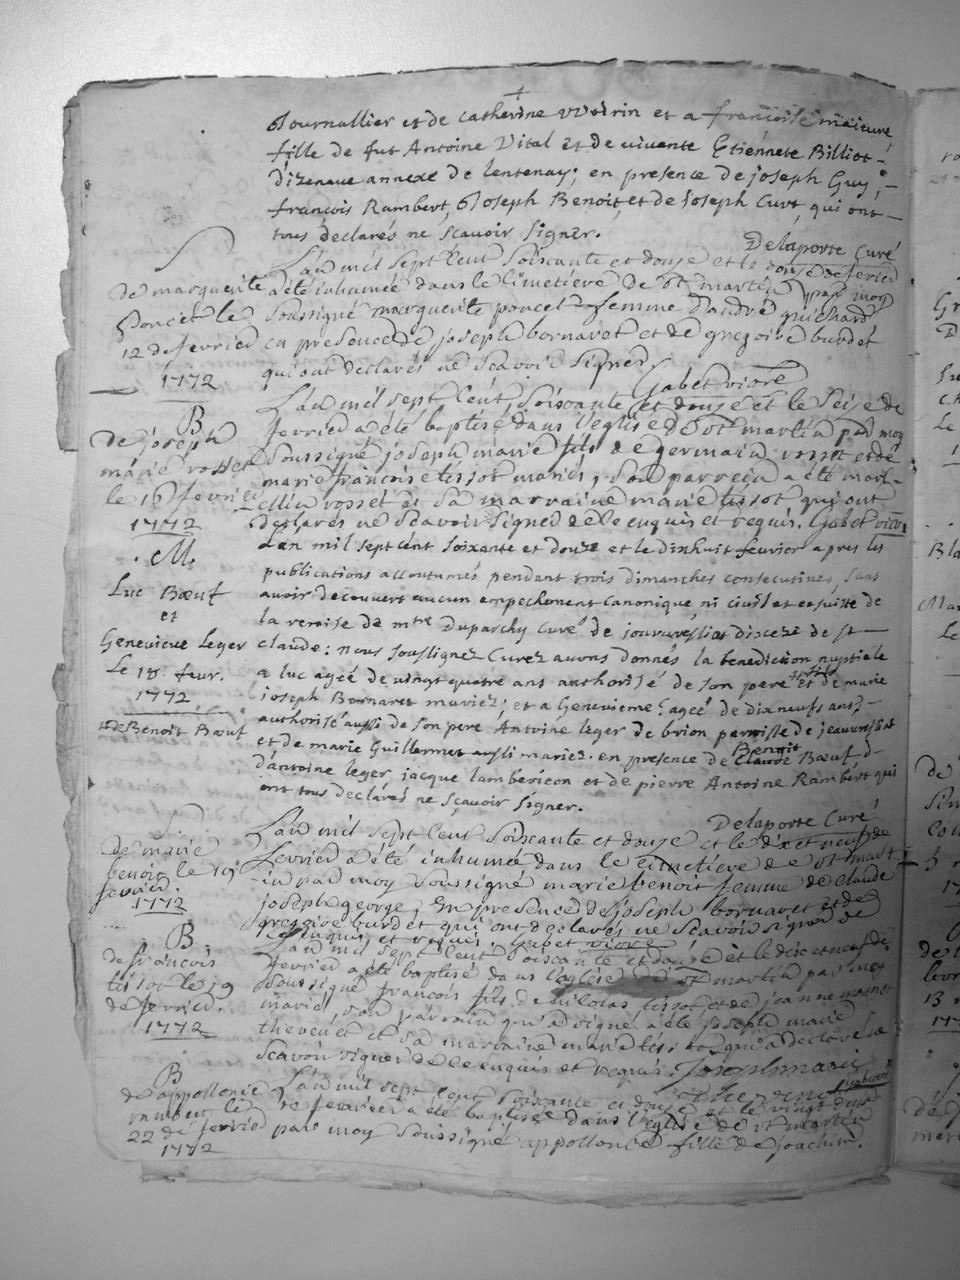 Tournallier et de Catherine Woirin et a françoise maieure
fille de fut Antoine Vital et de vivente Etiennete Billiot
dizenave annexe de lentenay; en presence de joseph Guy,
françois Rambert, Joseph Benoit, et de joseph Curt, qui ont
tous declarés ne sçavoir signer.
Delaporte Curé
S
de marguerite
poncet le
12 de fevrier
1772
L'an mil sept cent soissante et douze et le douze de fevrier
a été inhumée dans le cimetiere de st martin par moy
soussigné marguerite poncet femme d'andré guichard
en presence de joseph bornaret et de gregoire burdet
qui ont declarés ne scavoir signer
Gabet vicre
B
de joseph
marie rosset
le 16 fevrier
1772
L'an mil sept cent soissante et douze et le seize de
fevrier a été baptisé dans l'eglise de st martin par moy
soussigné joseph marie fils de germain rosset et de
marie françoise tissot mariés, son parrein a été
rosset et sa marraine marie tissot qui ont
declarés ne scavoir signer de ce enquis et requis. Gabet vicre
M.
Luc Bœuf
et
Genevieve Leger
Le 18. fevr.
1772
+ de Benoit Bœuf
L'an mil sept cent soixante et douze et le dixhuit fevrier apres les
publications accoutumés pendant trois dimanches consecutives, sans
avoir decouvert aucun empechement canonique ni civil et ensuitte de
la remise de mtre Duparchy Curé de diocese de st
claude: nous soussignez Curez avons donnés la benediction nuptiale
a luc agée de vingt quatre ans authorisé de son pere et de marie
joseph Bornaret mariez; et a Genevieve agée de dixneufs ans
authorisé aussi de son pere Antoine leger de brion parroisse de
et de marie Guillermet aussi mariez. en presence de Claude Bœuf
Benoit
d'antoine leger, jacque lambericon et de pierre Antoine Rambert qui
ont tous declarés ne sçavoir signer.
Delaporte Curé
de marie
benoit le 19
fevrier.
1772
L'an mil sept cent soissante et douze et le dix et neuf de
fevrier a été inhumée dans le cimetiere de st mart
in par moy soussigné marie benoit femme de claude
joseph george, en presence de joseph bornaret et de
gregoire burdet qui ont declarés ne scavoir signer de
ce enquis et requis. Gabet vicre
B
de françois
tissot le 19
de fevrier.
1772
L'an mil sept cent soissante et douze et le dix et neuf de
fevrier a été baptisé dans l'eglise de st martin par moy
soussigné françois fils de nicolas tissot et de jeanne
mariés, son parrein qui a signé a été joseph marie
thevenet et sa marraine marie tissot qui a declaré ne
scavoir signer de ce enquis et requis. Joseph marie
Thevenet
B
de appollonie
rambert le
22 de fevrier
1772
L'an mil sept cent soissante et douze et le vingt deux
de fevrier a été baptisée dans l'eglise de st martin
par moy soussigné appollonie fille de joachim